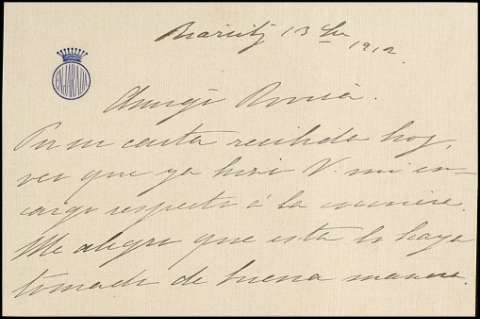 Biarritz 13 Sbr
1912.
Amigo Rossia.
Por su carta recibida hoy,
veo que ya hizo V. mi en-
cargo respecto á la
Me alegro que esta lo haya
tomado de buena manera.